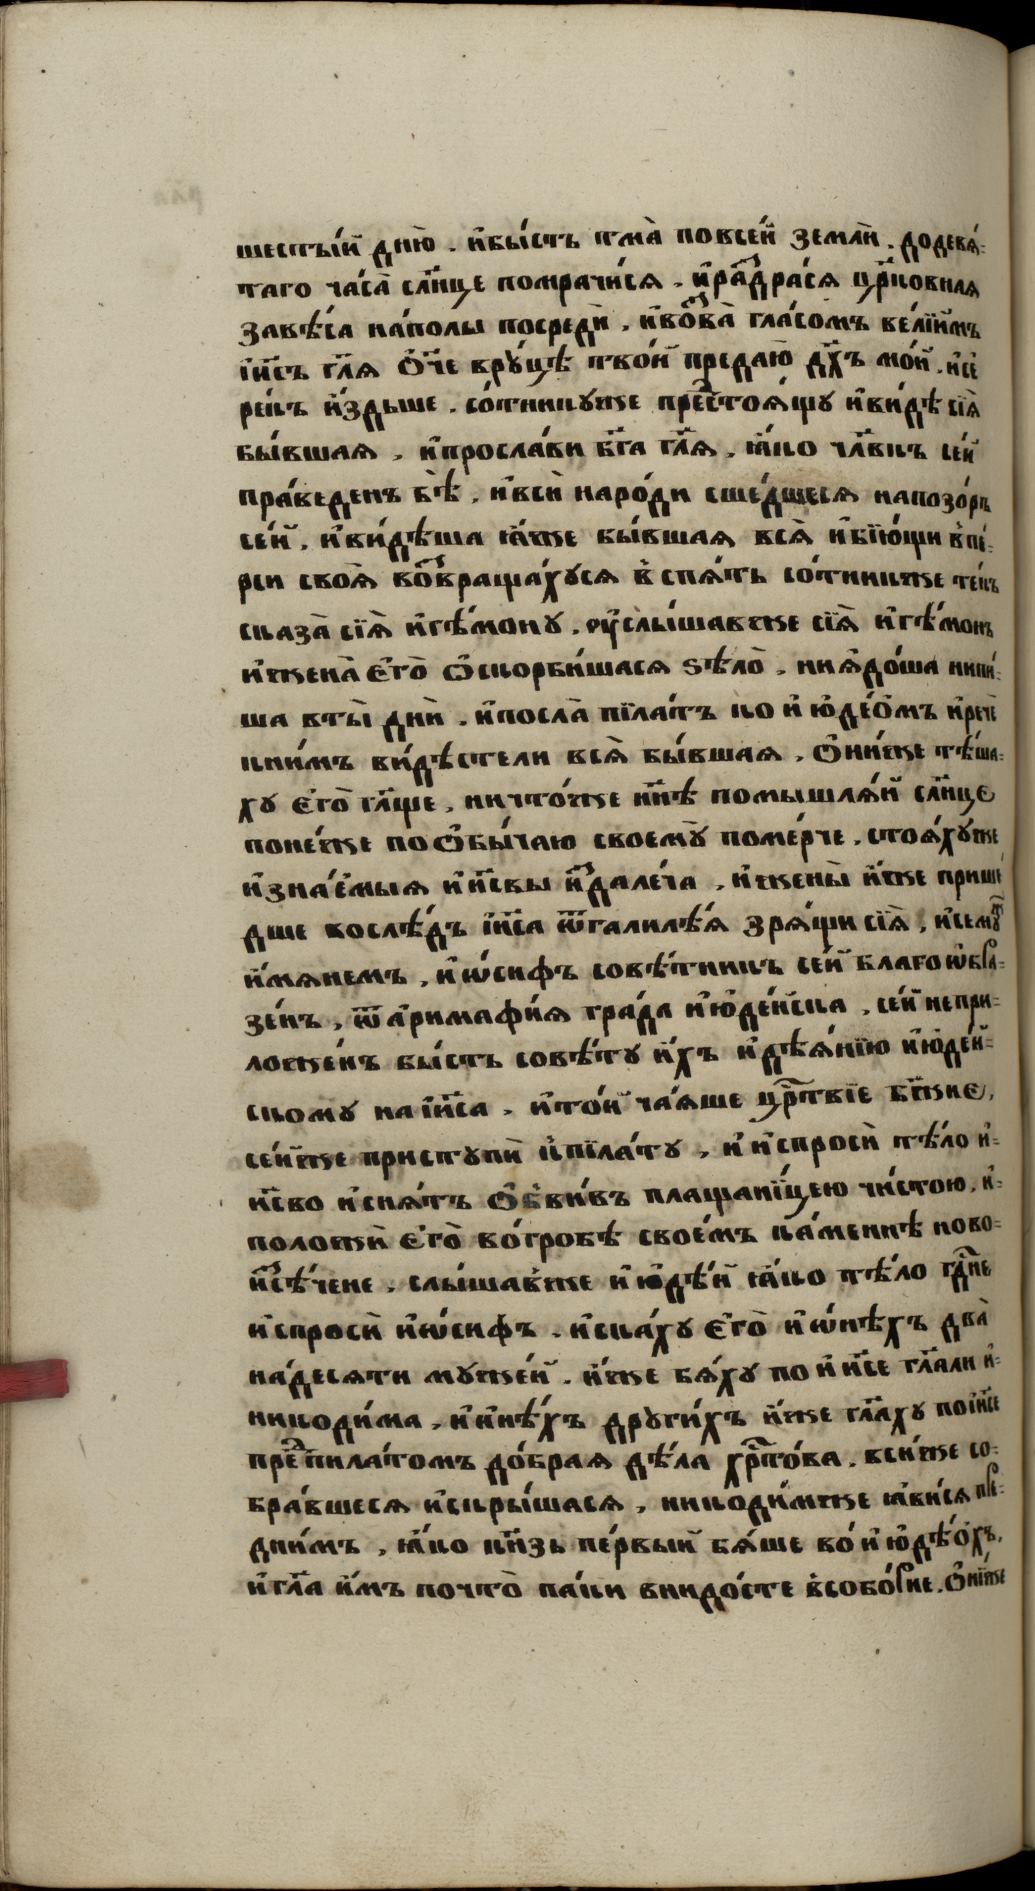 шесты́й дню̀ . и҆бы́сть тма̀ повсе́й землѝ . додевѧ́-
таго часа̀ сл҃нце помрачи́сѧ . и҆ раз̾дра́сѧ цр҃ковнаѧ
завѣ́са на́полы посредѝ , и҆воз̾ва̀ гла́сомъ ве́лїимъ
і҆и҃съ гл҃ѧ ѻ҆́ч҃е вру́цѣ твои́ предаю̀ дх҃ъ мо́й . и҆се́
ре́къ и҆́здьше . со́тникуже пред̾стоѧ́щу и҆ви́дѣ сїѧ̀
бы́вшаѧ , и҆просла́ви бг҃а гл҃ѧ , ꙗ҆́ко чл҃вкъ се́й
пра́веденъ бѣ̀ , и҆всѝ наро́ди сше́дшесѧ напозо́ръ
се́й , и҆ви́дѣша ꙗ҆́же бы́вшаѧ всѧ̀ и҆бїю́щи в̾пе́-
рси своѧ̀ воз̾враща́хусѧ в̾спѧ́ть со́тникже те́къ
сказа̀ сїѧ̀ и҆гѣ́мону . оу҆слы́шавже сїѧ̀ и҆гѣ́монъ
и҆жена̀ є҆го̀ ѡ҆скорби́шасѧ ѕѣло̀ , ниꙗ҆до́ша нипи́-
ша вты̀ днѝ . и҆посла̀ пїла́тъ ко и҆ ю҆де́ѻмъ и҆речѐ
кни́мъ ви́дѣстели всѧ̀ бы́вшаѧ , ѻ҆ни́же тѣ́ша-
ху є҆го̀ гл҃ще , ничто́же нн҃ѣ помышлѧ́й сл҃нце
поне́же поѻ҆бы́чаю своему̀ поме́рче . стоѧ́хуже
и҆зна́емыѧ и҆ и҆и҃свы и҆з̾дале́ча , и҆жены̀ и҆́же прише́-
дше восле́дъ і҆и҃са ѿгалиле́ѧ зрѧ́щи сїѧ̀ , и҆сему́ж
и҆́мѧнемъ , и҆ ѡ҆́сифъ совѣ́тникъ се́й благоѡ҆бра-
зе́нъ , ѿ а҆римафи́ѧ гра́да и҆ ю҆де́йска , се́й непри-
ложе́нъ бы́сть совѣ́ту и҆́хъ и҆дѣѧ́нїю и҆ ю҆де́й-
скому на і҆и҃са . и҆то́й ча́ѧше цр҃твїе бж҃ие ,
се́йже приступѝ к̾пїла́ту , и҆ и҆спросѝ тѣ́ло и҆-
и҃сво и҆снѧ́тъ ѻ҆бви́въ плащани́цею чи́стою , и҆-
положѝ є҆го̀ во́гробѣ свое́мъ ка́меннѣ ново-
и҆зсѣ́чене . слы́шав̾же и҆ ю҆дѣ́й ꙗ҆́ко тѣ́ло гд҃не
и҆спросѝ и҆ѡ́сифъ . и҆ска́ху є҆го̀ и҆ ѡ҆нѣ́хъ два̀
на́десѧти муже́й . и҆́же бѧ́ху по и҆ и҆и҃се гл҃али и҆-
никоди́ма , и҆ и҆нѣ́хъ други́хъ и҆́же гл҃аху поі҆и҃се
пред̾пила́томъ до́браѧ дѣ́ла хр҃то́ва . вси́же со-
бра́вшесѧ и҆скры́шасѧ , никоди́мже ꙗ҆ви́сѧ пре-
дни́мъ , ꙗ҆́ко кн҃зь пе́рвый бѧ́ше во и҆ ю҆дѣ́ѻхъ ,
и҆гл҃а и҆́мъ почто̀ па́ки внидо́сте в̾собо́рие . ѻ҆ни́же